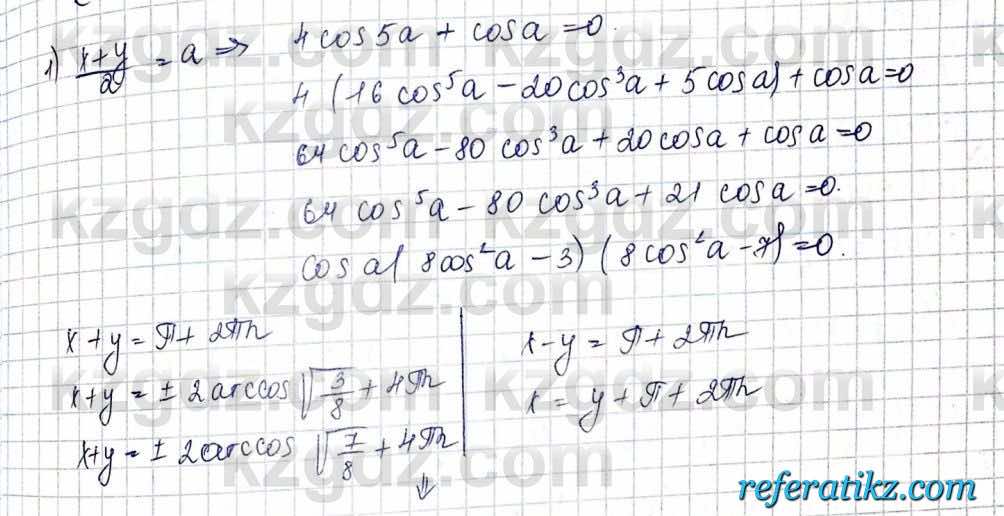 1) x+y/2 = a ⇒ 4 cos 5a + cos a = 0.
4 (16 cos⁵a − 20 cos³a + 5 cos a) + cos a = 0
64 cos⁵a − 80 cos³a + 20 cos a + cos a = 0
64 cos⁵a − 80 cos³a + 21 cos a = 0.
cos a( 8cos²a − 3) (8 cos²a − 7) = 0.
x + y = π + 2πn
x+y = ± 2 arccos √3/8 + 4πn
x+y = ± 2 arccos √7/8 + 4πn
⇓
x − y = π + 2πn
x = y + π + 2πn
kzgdz.com
referatikz.com